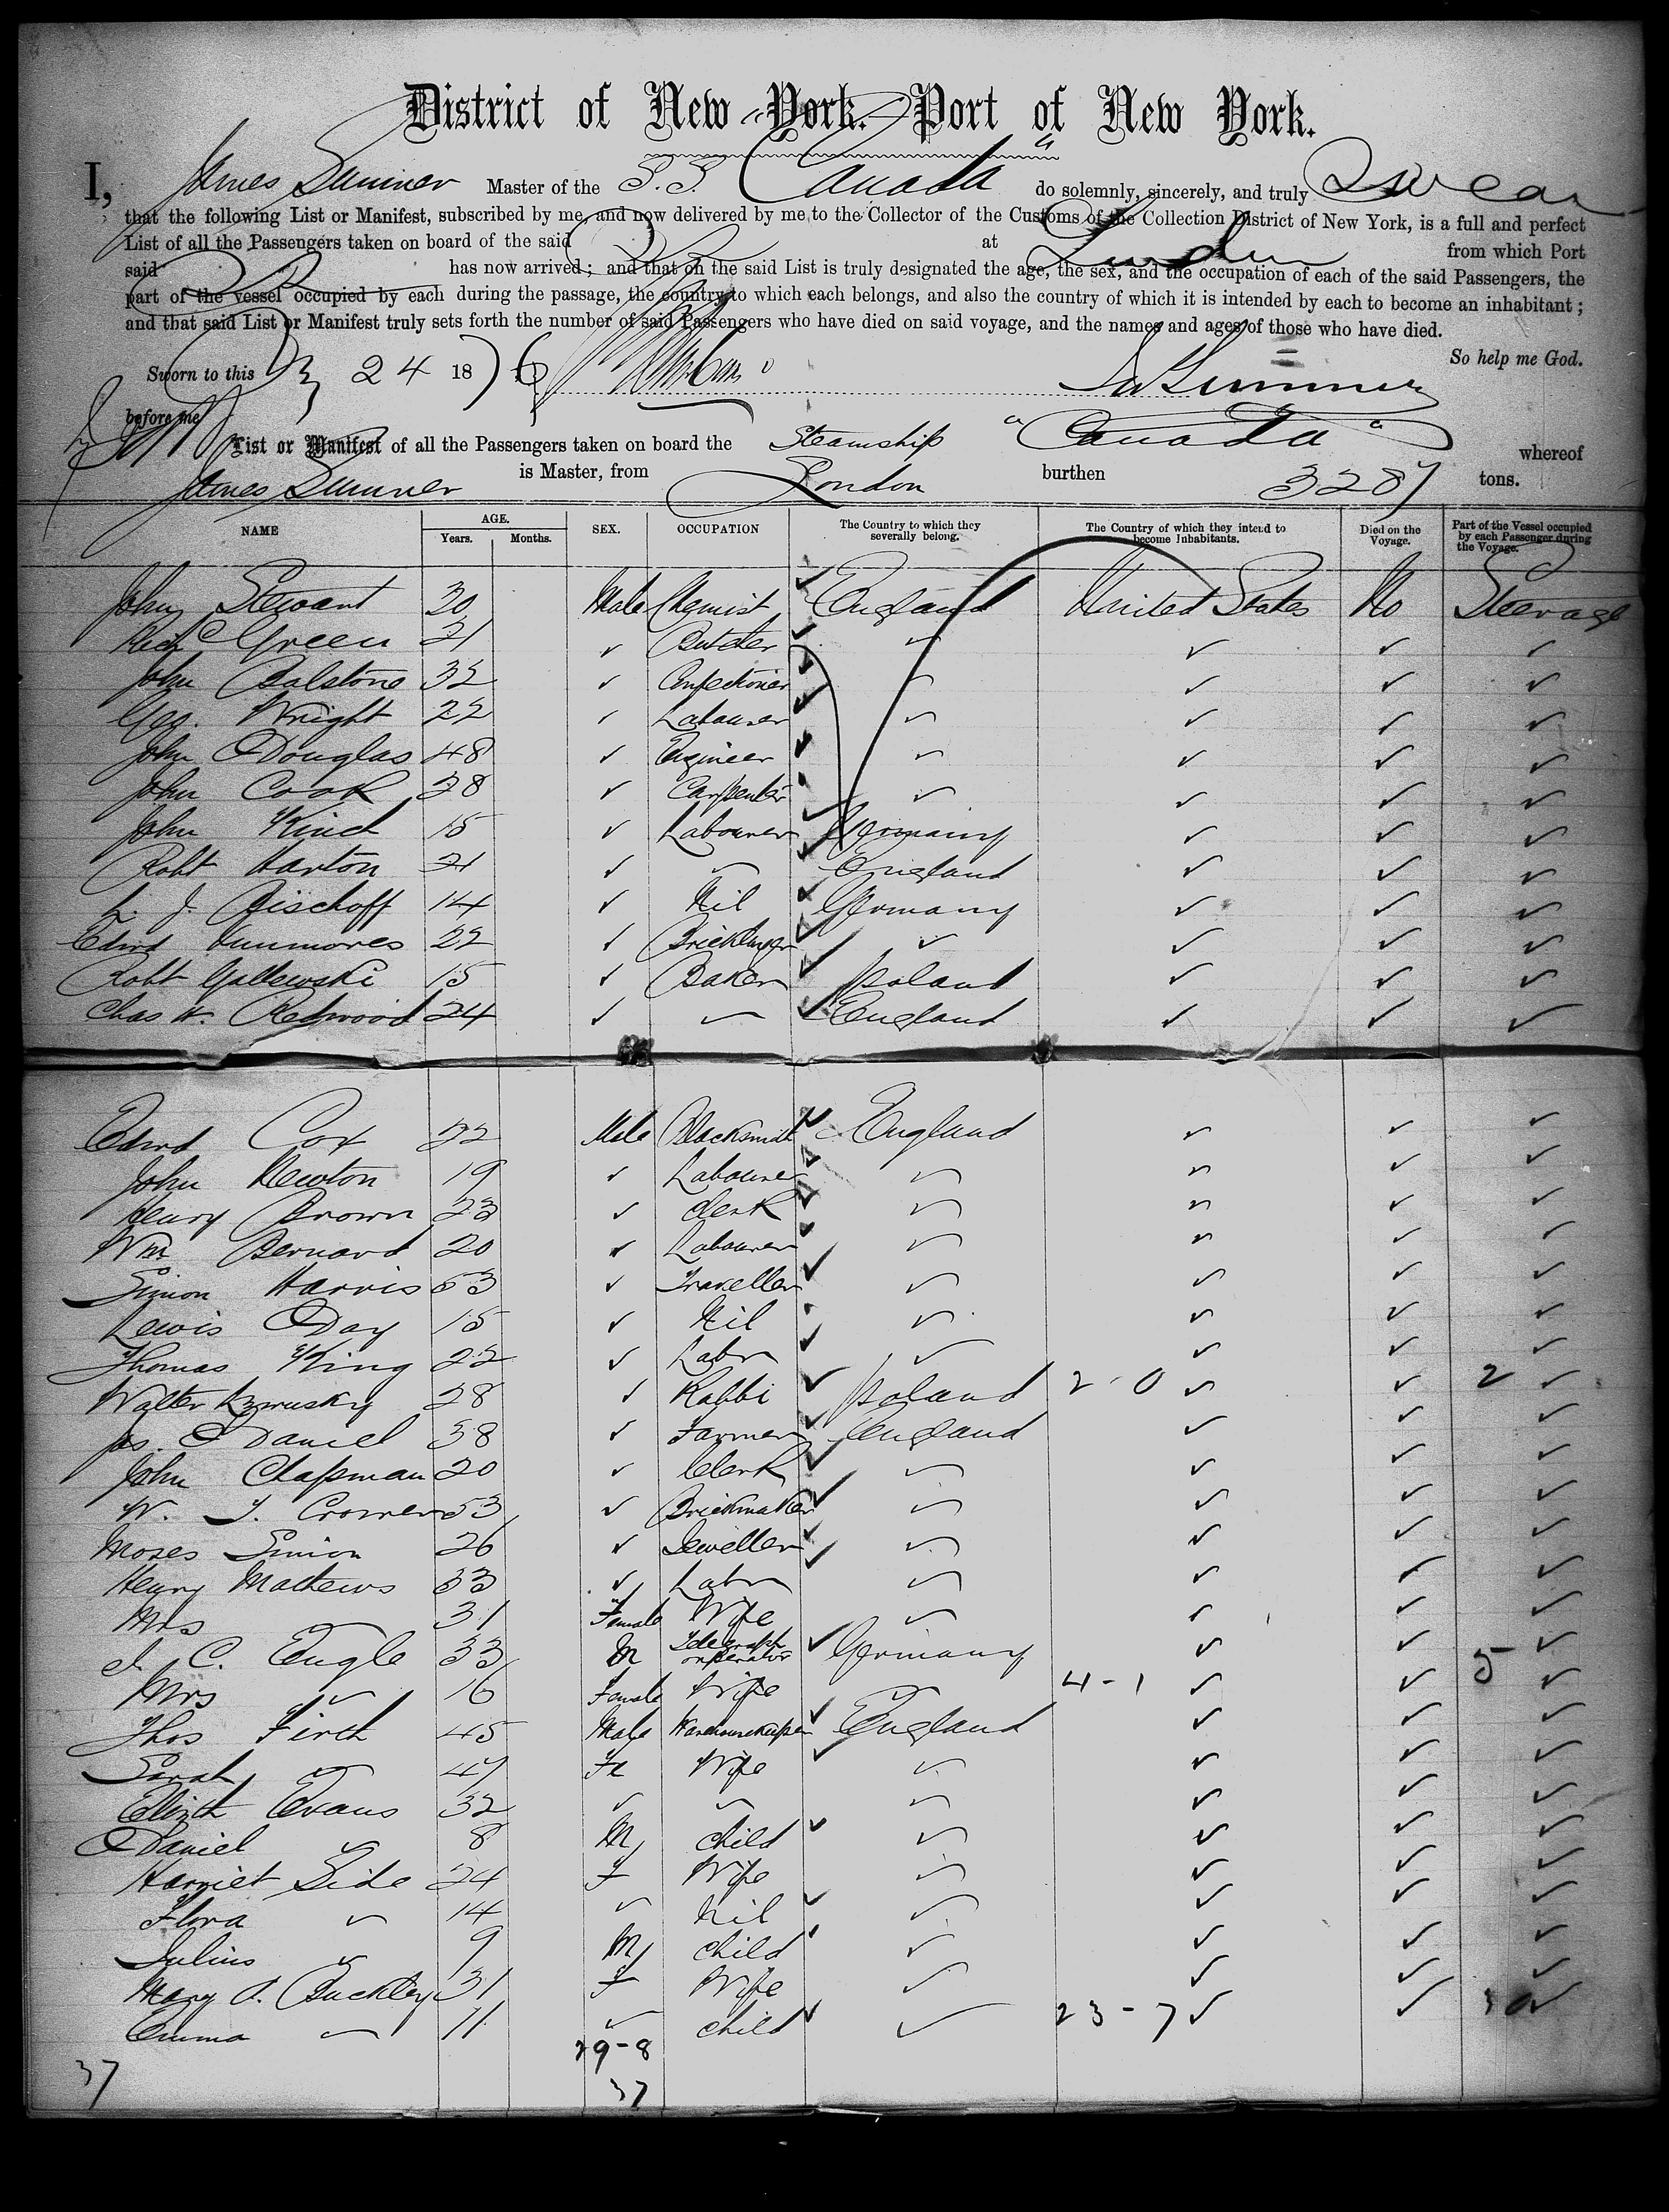 District of New York. Port of New York.
I, James Sumner Master of the S.S. Canada do solemnly, sincerely, and truly Swear
that the following List or Manifest, subscribed by me, and now delivered by me to the Collector of the Customs of the Collection District of New York, is a full and perfect
List of all the Passengers taken on board of the said at London from which Port
said has now arrived; and that on the said List is truly designated the age, the sex, and the occupation of each of the said Passengers, the
part of the vessel occupied by each during the passage, the country to which each belongs, and also the country of which it is intended by each to become an inhabitant;
and that said List or Manifest truly sets forth the number of said Passengers who have died on said voyage, and the names and ages of those who have died.
So help me God.
Sworn to this 24 1876 Jas Sumner
before me
List or Manifest of all the Passengers taken on board the Steamship "Canada" whereof
James Sumner is Master, from London burthen 3287 tons.
NAME AGE. Years. Months. SEX. OCCUPATION The Country to which they severally belong. The Country of which they intend to become Inhabitants. Died on the Voyage. Part of the Vessel occupied by each Passenger during the Voyage.
John Stewart 30 Male Chemist England United States No Steerage
Richd Green 21 ✓ Butcher ✓ ✓ ✓ ✓
John Balstone 32 ✓ Confectioner ✓ ✓ ✓ ✓
Geo. Wright 22 ✓ Labourer ✓ ✓ ✓ ✓
John Douglas 48 ✓ Engineer ✓ ✓ ✓ ✓
John Cook 28 ✓ Carpenter ✓ ✓ ✓ ✓
John Kind 15 ✓ Labourer Germany ✓ ✓ ✓
Robt Harton 21 ✓ ✓ England ✓ ✓ ✓
L. J. Bischoff 14 ✓ Nil Germany ✓ ✓ ✓
Edwd 22 ✓ ✓ ✓ ✓ ✓
Robt Gallewski 15 ✓ Baker Poland ✓ ✓ ✓
Chas W. Redwood 24 ✓ ✓ England ✓ ✓ ✓
Edwd Cox 22 Male Blacksmith England ✓ ✓ ✓
John Newton 19 ✓ Labourer ✓ ✓ ✓ ✓
Henry Brown 23 ✓ Clerk ✓ ✓ ✓ ✓
Wm Bernard 20 ✓ Labourer ✓ ✓ ✓ ✓
Simon Harris 53 ✓ Traveller ✓ ✓ ✓ ✓
Lewis Day 15 ✓ Nil ✓ ✓ ✓ ✓
Thomas King 22 ✓ Labr ✓ ✓ ✓ ✓
Walter 28 ✓ Rabbi Poland 2-0 ✓ ✓ 2 ✓
Jas. Daniel 38 ✓ Farmer England ✓ ✓ ✓
John Chapman 20 ✓ Clerk ✓ ✓ ✓ ✓
W. T. 53 ✓ Brickmaker ✓ ✓ ✓ ✓
Moses Simon 26 ✓ Jeweller ✓ ✓ ✓ ✓
Henry Mathews 33 ✓ Labr ✓ ✓ ✓ ✓
Mrs ✓ 31 Female Wife ✓ ✓ ✓ ✓
C. Eugle 33 M Telegraph operator Germany ✓ ✓ 5 ✓
Mrs ✓ 16 Female Wife 4-1 ✓ ✓ ✓
Thos Firth 45 Male Warehousekeeper England ✓ ✓ ✓
Sarah ✓ 47 Fe Wife ✓ ✓ ✓ ✓
Elizth Evans 32 ✓ ✓ ✓ ✓ ✓ ✓
Daniel ✓ 8 M Child ✓ ✓ ✓ ✓
Harriet Side 24 F Wife ✓ ✓ ✓ ✓
Flora ✓ 14 ✓ Nil ✓ ✓ ✓ ✓
Julius ✓ 9 M child ✓ ✓ ✓ ✓
Mary A. Buckley 31 F Wife ✓ ✓ ✓ ✓
Emma ✓ 11 ✓ child ✓ 23-7 ✓ ✓ 30 ✓
29-8
37 37